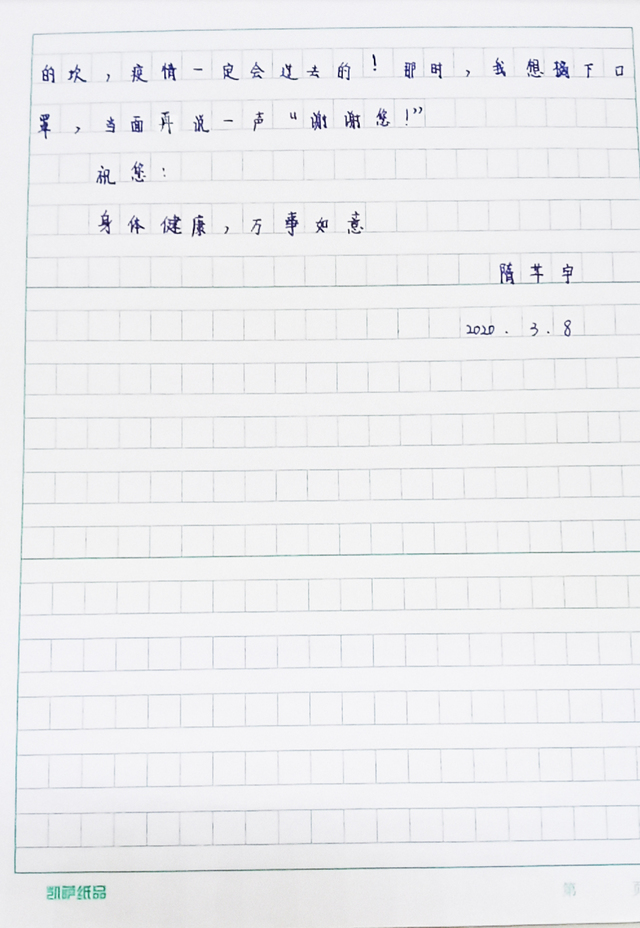 的坎，疫情一定会过去的！那时，我想摘下口
罩，当面再说一声“谢谢您！”
祝您：
身体健康，万事如意
隋芊宇
2020.3.8
凯萨纸品
第 页